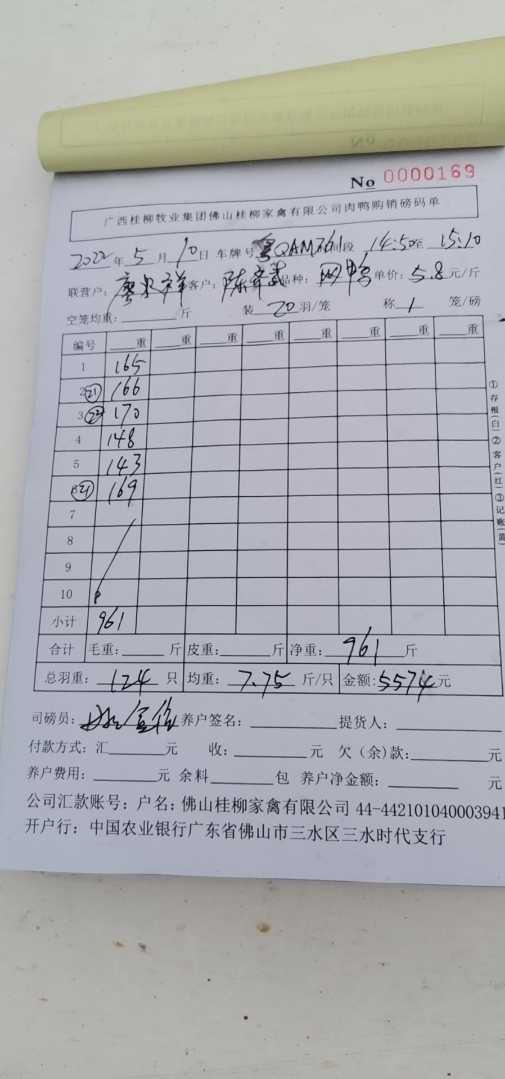 No 0000169
广西桂柳牧业集团佛山桂柳家禽有限公司肉鸭购销磅码单
2022年 5月 10日 车牌号 粤QAM761 时段 14:50至 15:10
联营户: 客户: 陈 品种: 单价: 5.8元/斤
空笼均重: 斤 装 20 羽/笼 称 1 笼/磅
编号 重 重 重 重 重 重 重 重
1 165
2 (21) 166
3 (22) 170
4 148
5 143
6 (21) 169
7
8
9
10
小计 961
合计 毛重: 斤 皮重: 斤 净重: 961 斤
总羽重: 124 只 均重: 7.75 斤/只 金额: 5574元
司磅员: 养户签名: 提货人:
付款方式: 汇 元 收: 元 欠(余)款: 元
养户费用: 元 余料 包 养户净金额: 元
公司汇款账号: 户名: 佛山桂柳家禽有限公司 44-442101040003941
开户行: 中国农业银行广东省佛山市三水区三水时代支行
①存根(白)②客户(红)③记账(黄)